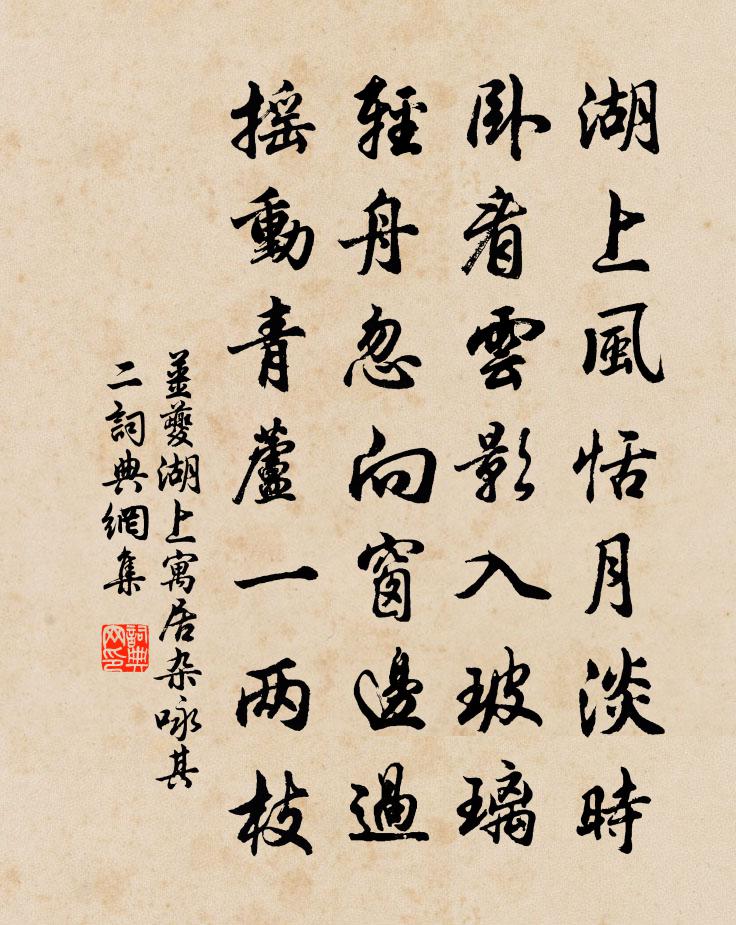 湖上風恬月淡時
卧看雲影入玻璃
輕舟忽向窗邊過
摇動青蘆一两枝
姜夔湖上寓居杂咏其
二詞典網集
詞典
网印